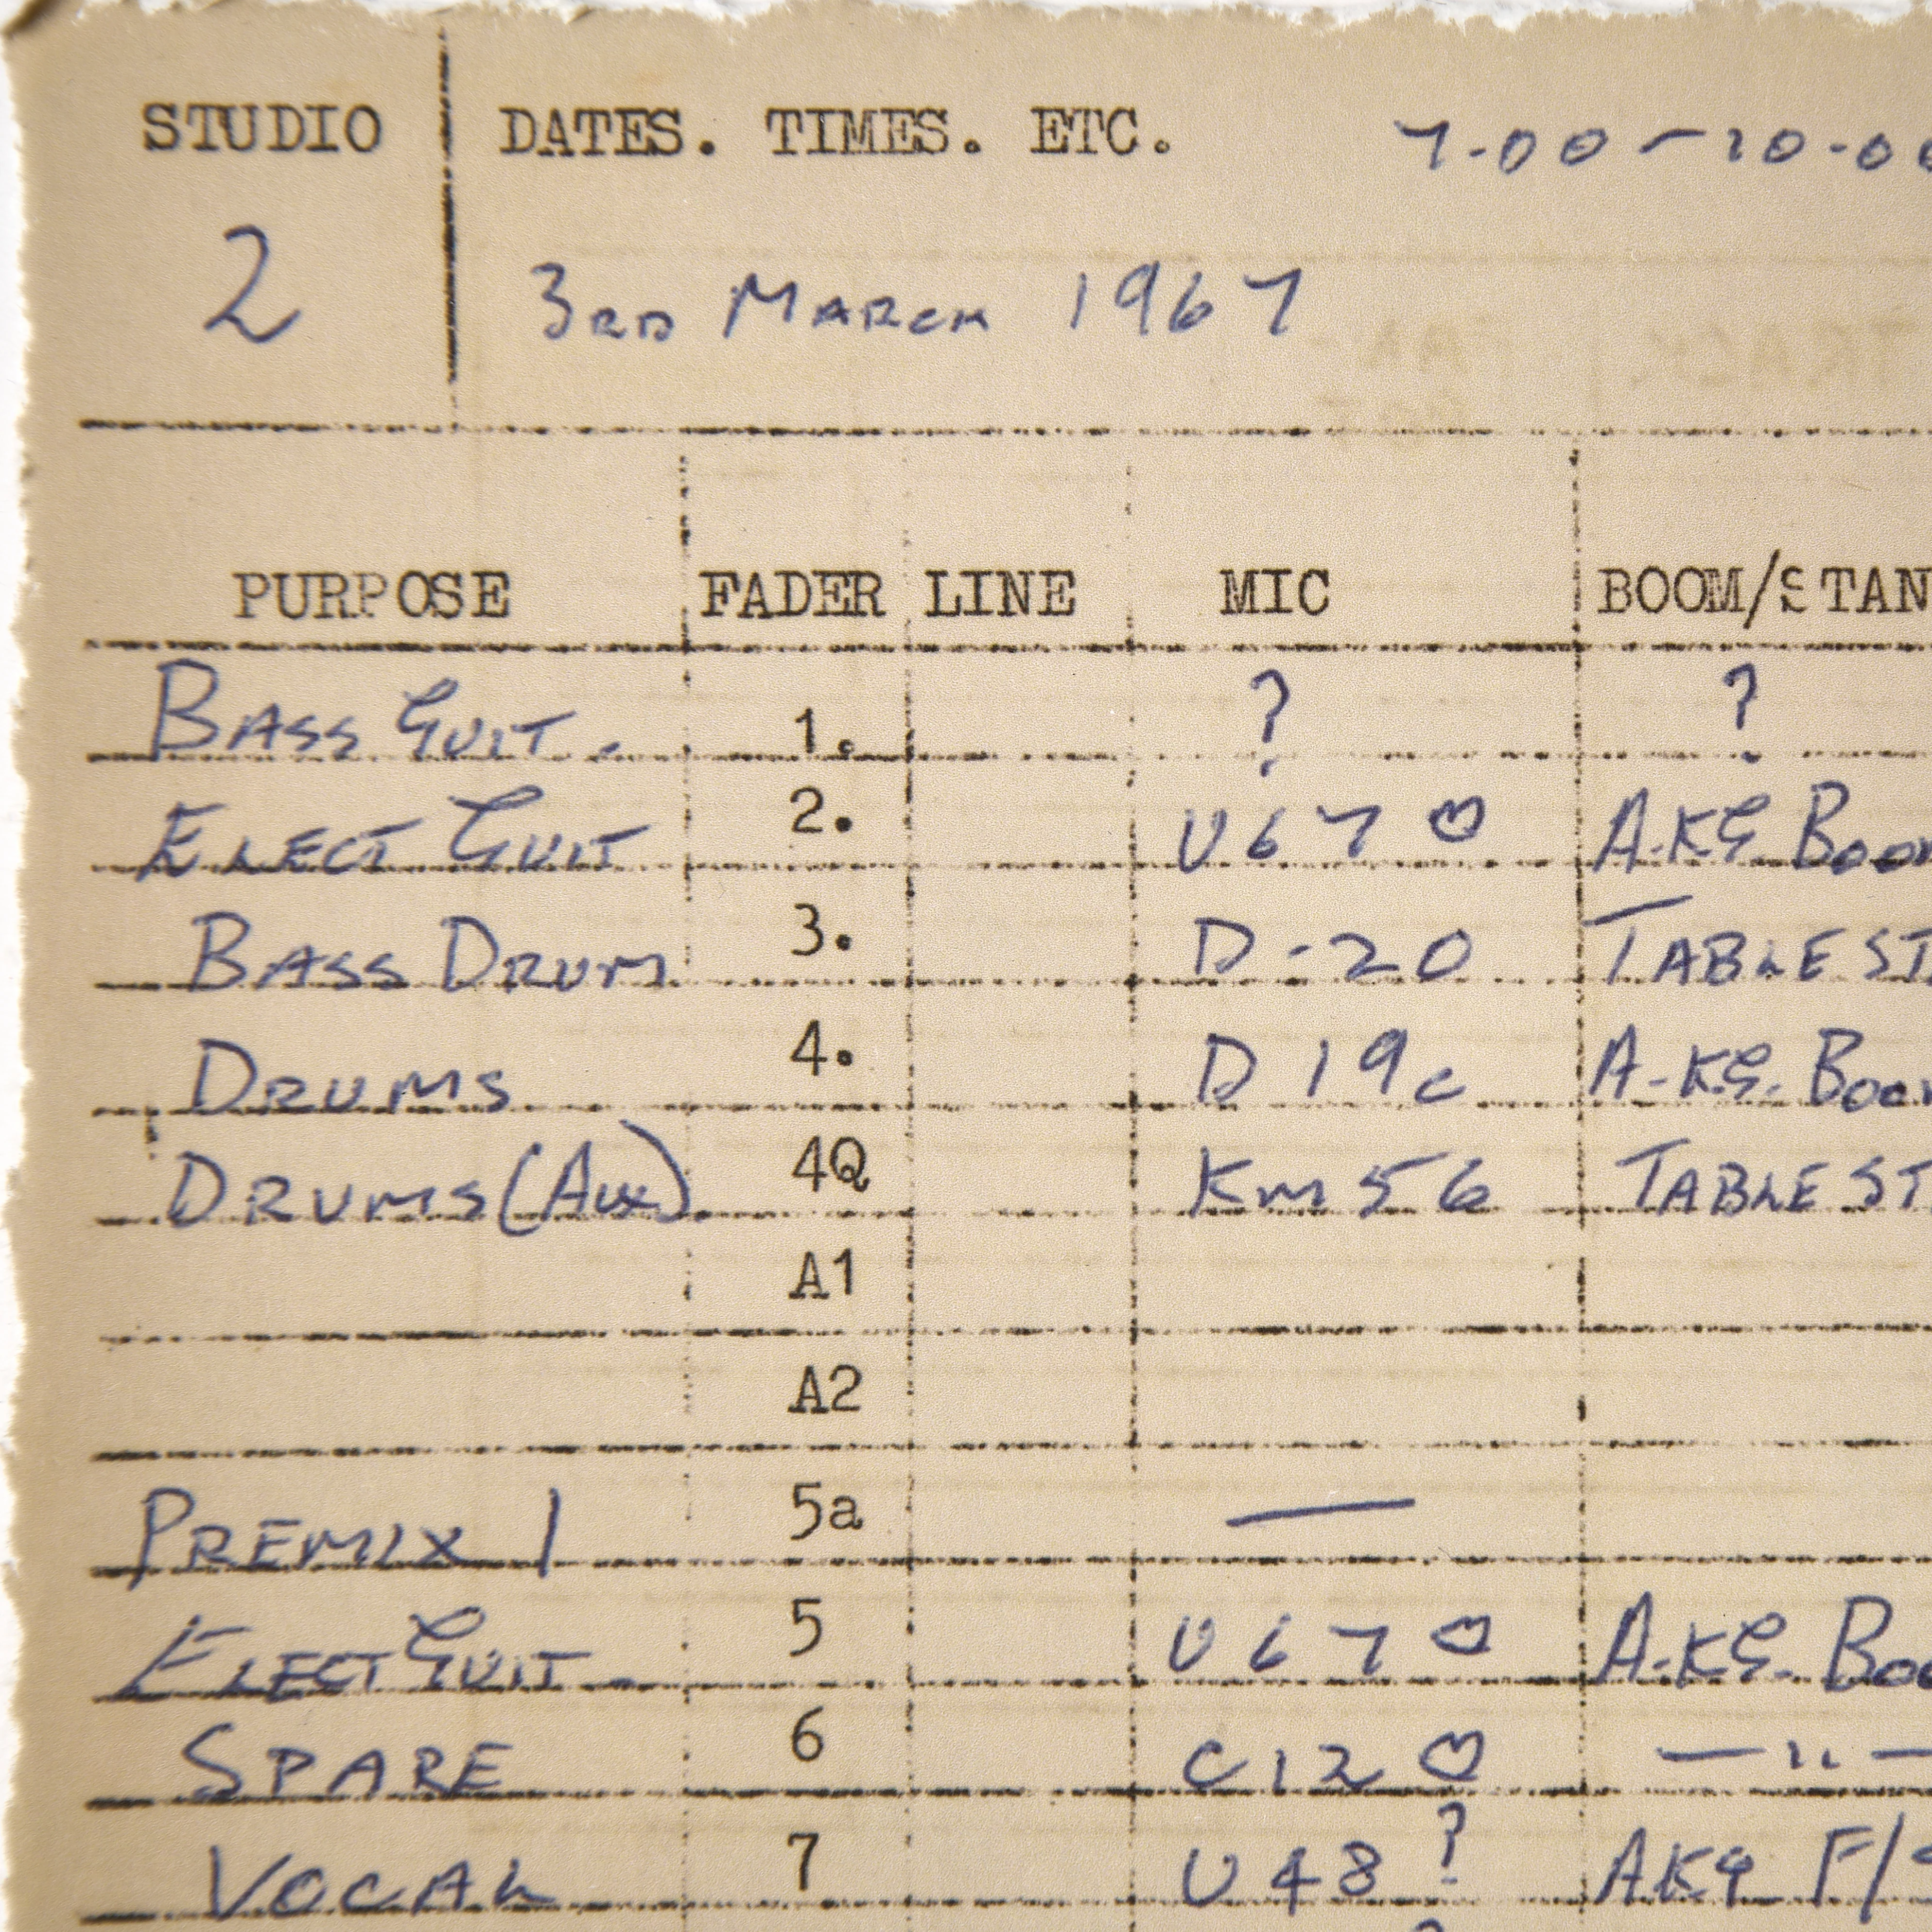 STUDIO DATES. TIMES. ETC. 7.00 - 10.00
2 3RD MARCH 1967
PURPOSE FADER LINE MIC BOOM/STAN
BASS GUIT. 1. ? ?
ELECT GUIT 2. U67 ♡ A.KG BOOM
BASS DRUM 3. D-20 TABLE ST
DRUMS 4. D19c A.KG. BOOM
DRUMS (AUX). 4Q KM56 TABLE ST
A1
A2
PREMIX 1 5a —
ELECT GUIT 5 U67 ♡ A.KG. BOO
SPARE 6 C12 ♡ — " —
VOCAL 7 U48 ? AKG F/S